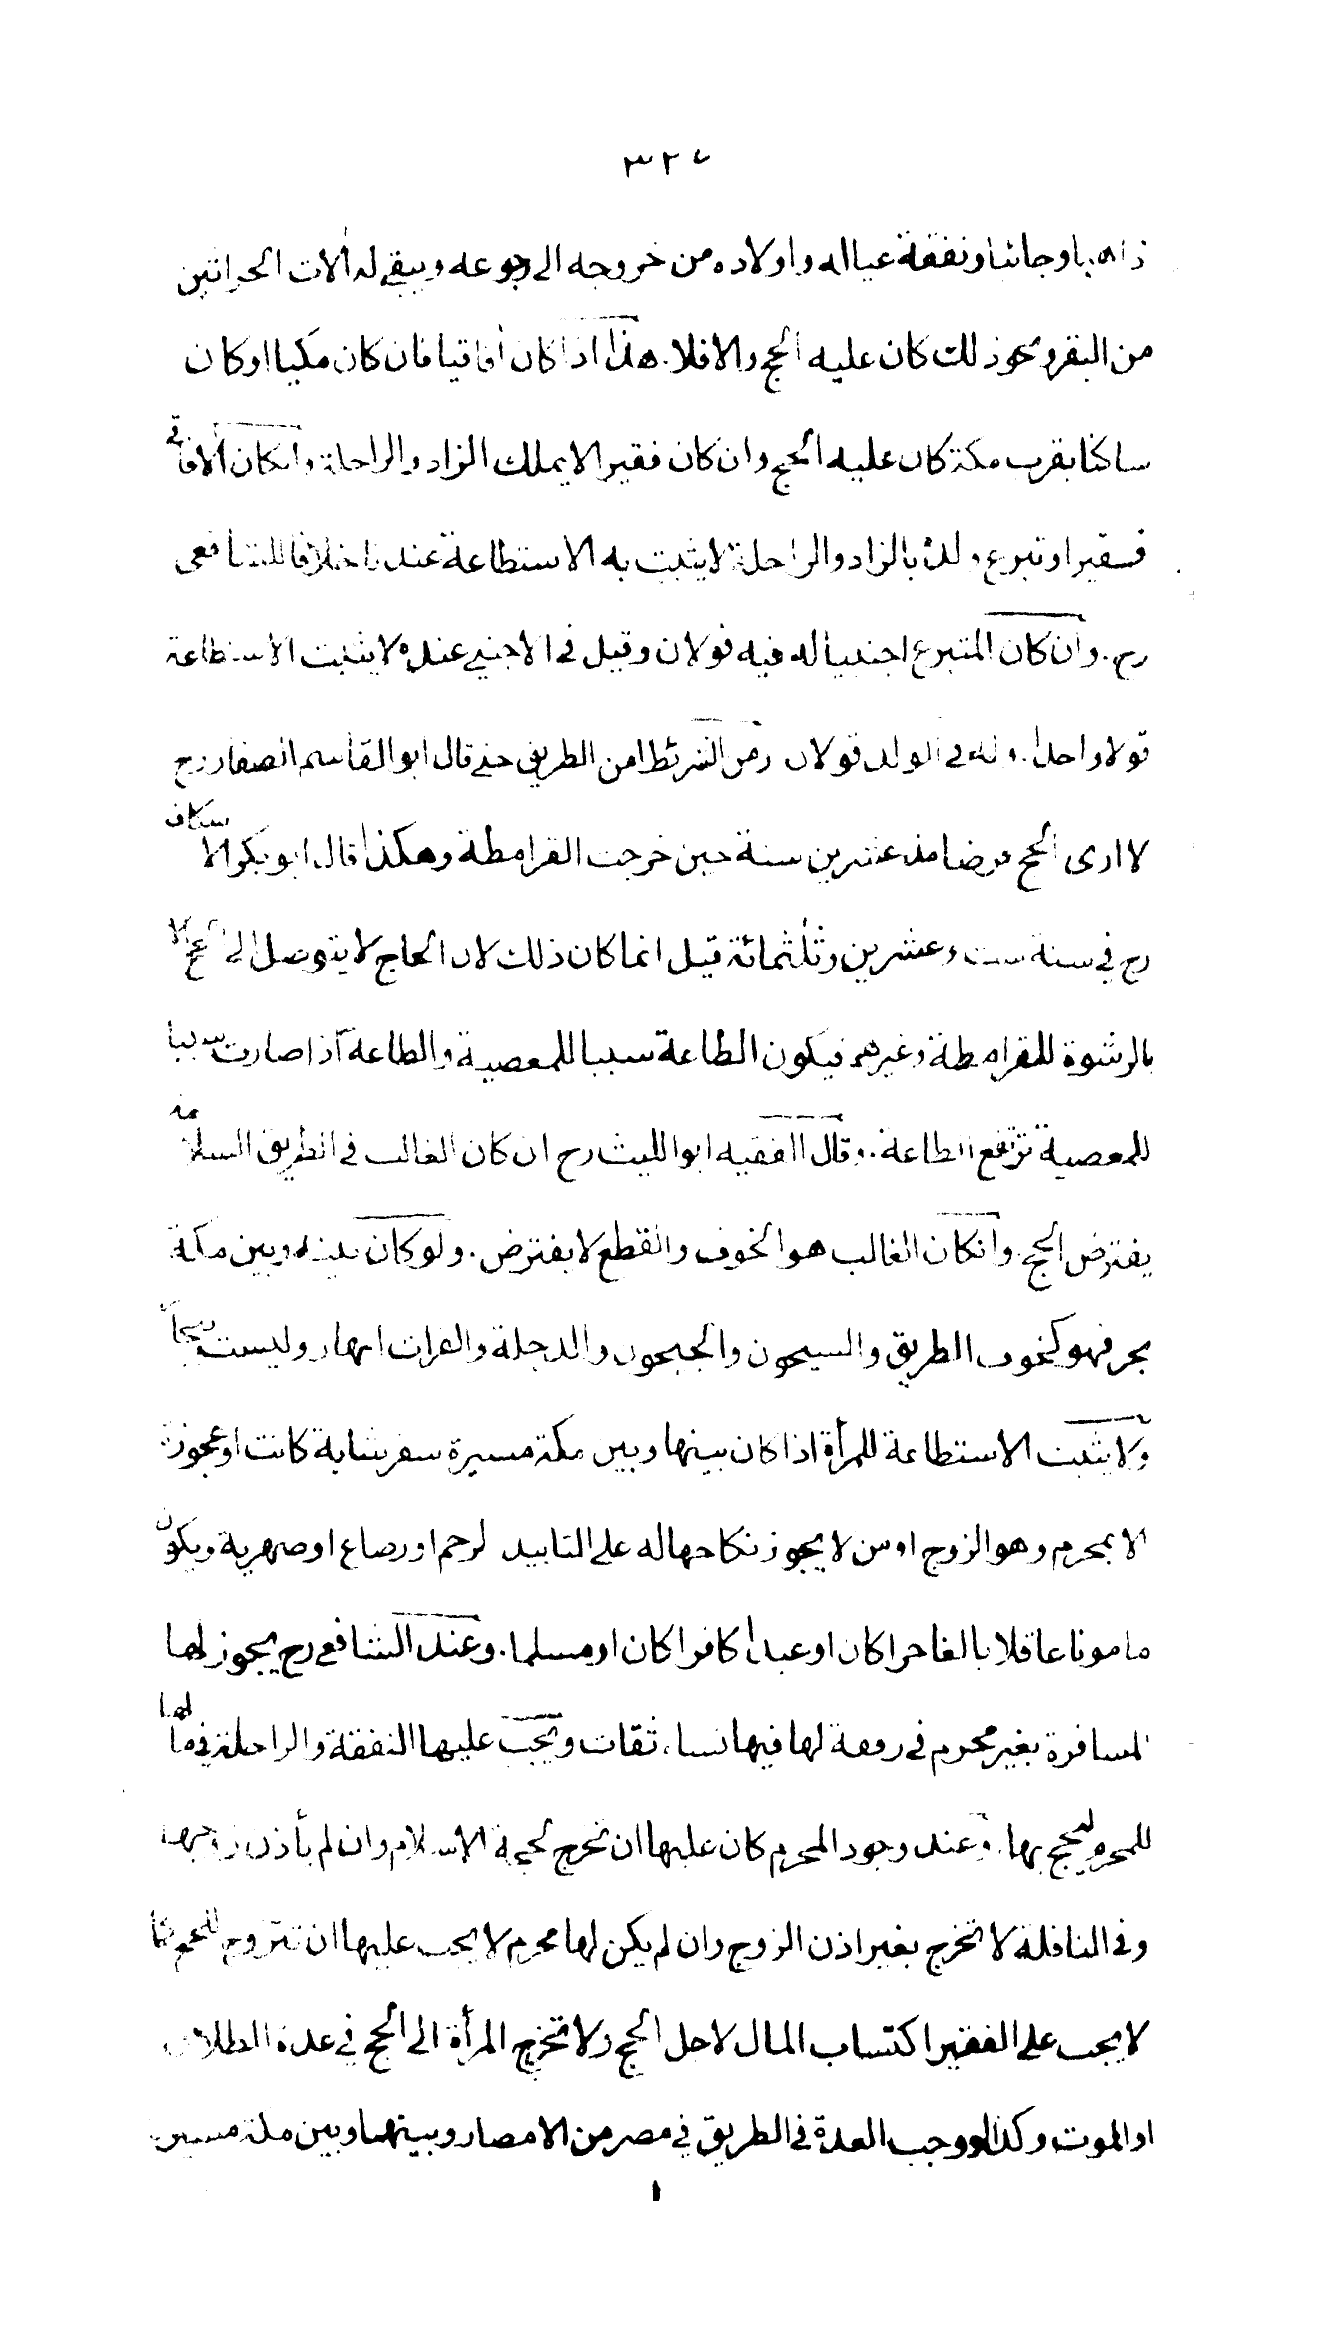 ٣٢٧
ذاهبا وجائيا ونفقة عياله واولاده من خروجه الى رجوعه ويبقى له ألات الحراثين
من البقر ونحوذلك كان عليه الحج والافلا. هذا اذا كان أفاقيا فان كان مكيا اوكان
ساكنا بقرب مكة كان عليه الحج وان كان فقيرا لايملك الزاد والراحلة وانكان ألافاقى
فقيرا وتبرع ولده بالزاد والراحلة لايثبت به الاستطاعة عندنا خلافا للشافعى
رح. وان كان المتبرع اجنبيا له فيه قولان وقيل فى الاجنبى عنده لايثبت الاستطاعة
قولا واحدا. وله فى الولد قولان ومن الشرئط امن الطريق حتى قال ابوالقاسم الصفار رح
لا ارى الحج فرضا منذ عشرين سنة حين خرجت القرامطة وهكذا قال ابوبكر الاسكاف
رح فى سنة ست وعشرين وثلثمائة قيل انما كان ذلك لان الحاج لايتوصل الى الحج الا
بالرشوة للقرامطة وغيرهم فيكون الطاعة سببا للمعصية والطاعة اذا صارت سببا
للمعصية ترتفع الطاعة. وقال الفقيه ابوالليث رح ان كان الغالب فى الطريق السلامة
يفترض الحج. وانكان الغالب هوالخوف والقطع لايفترض. ولوكان بينه وبين مكة
بحر فهو كخوف الطريق والسيحون والجيحون والدجلة والفرات انهار وليست بحارا
ولايثبت الاستطاعة للمرأة اذا كان بينها وبين مكة مسيرة سفر شابة كانت اوعجوزة
الا بمحرم وهوالزوج اومن لايجوز نكاحها له على التابيد لرحم او رضاع او صهرية ويكون
مامونا عاقلا بالغا حرا كان اوعبدا كافرا كان اومسلما. وعند الشافعى رح يجوز لها
المسافرة بغير محرم فى رفقة لها فيها نساء ثقات ويجب عليها النفقة والراحلة فى مالها
للمحرم ليحج بها. وعند وجود المحرم كان عليها ان تخرج لحجة الاسلام وان لم يأذن زوجها
وفى النافلة لاتخرج بغير اذن الزوج وان لم يكن لها محرم لايجب عليها ان تتزوج للحج كما
لايجب على الفقير اكتساب المال لاجل الحج ولاتخرج المرأة الى الحج فى عدة الطلاق
او الموت وكذا لووجب العدة فى الطريق فى مصر من الامصار وبينها وبين مكة مسيرة
١